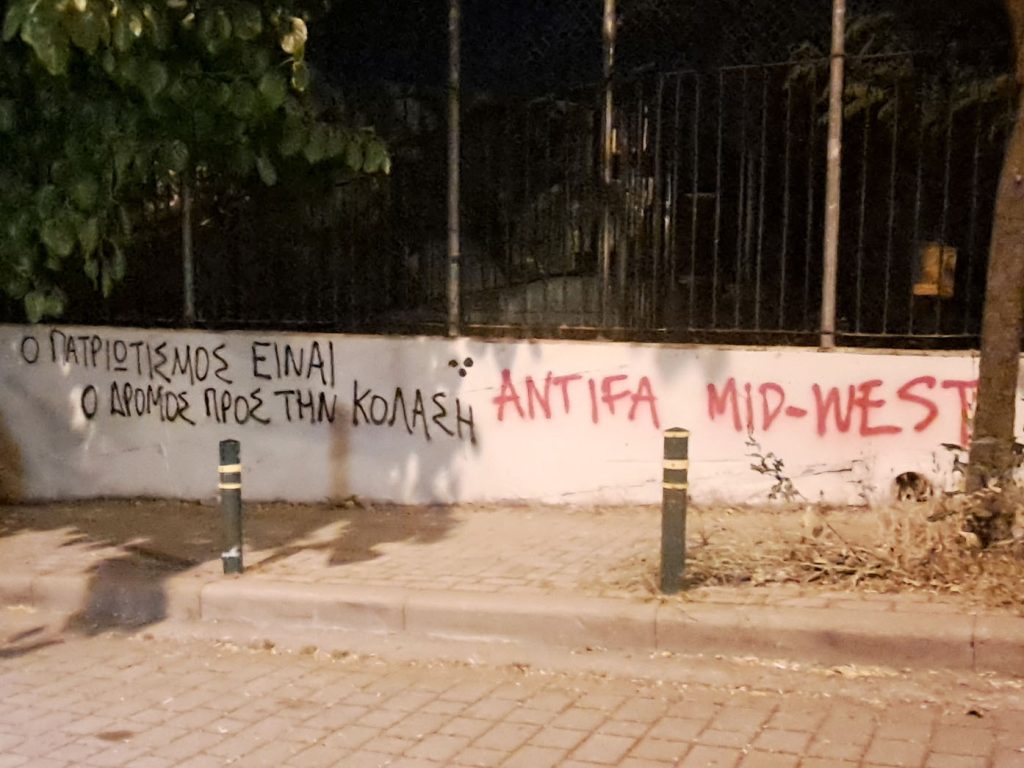 Ο ΠΑΤΡΙΩΤΙΣΜΟΣ ΕΙΝΑΙ
Ο ΔΡΟΜΟΣ ΠΡΟΣ ΤΗΝ ΚΟΛΑΣΗ
ANTIFA MID-WEST